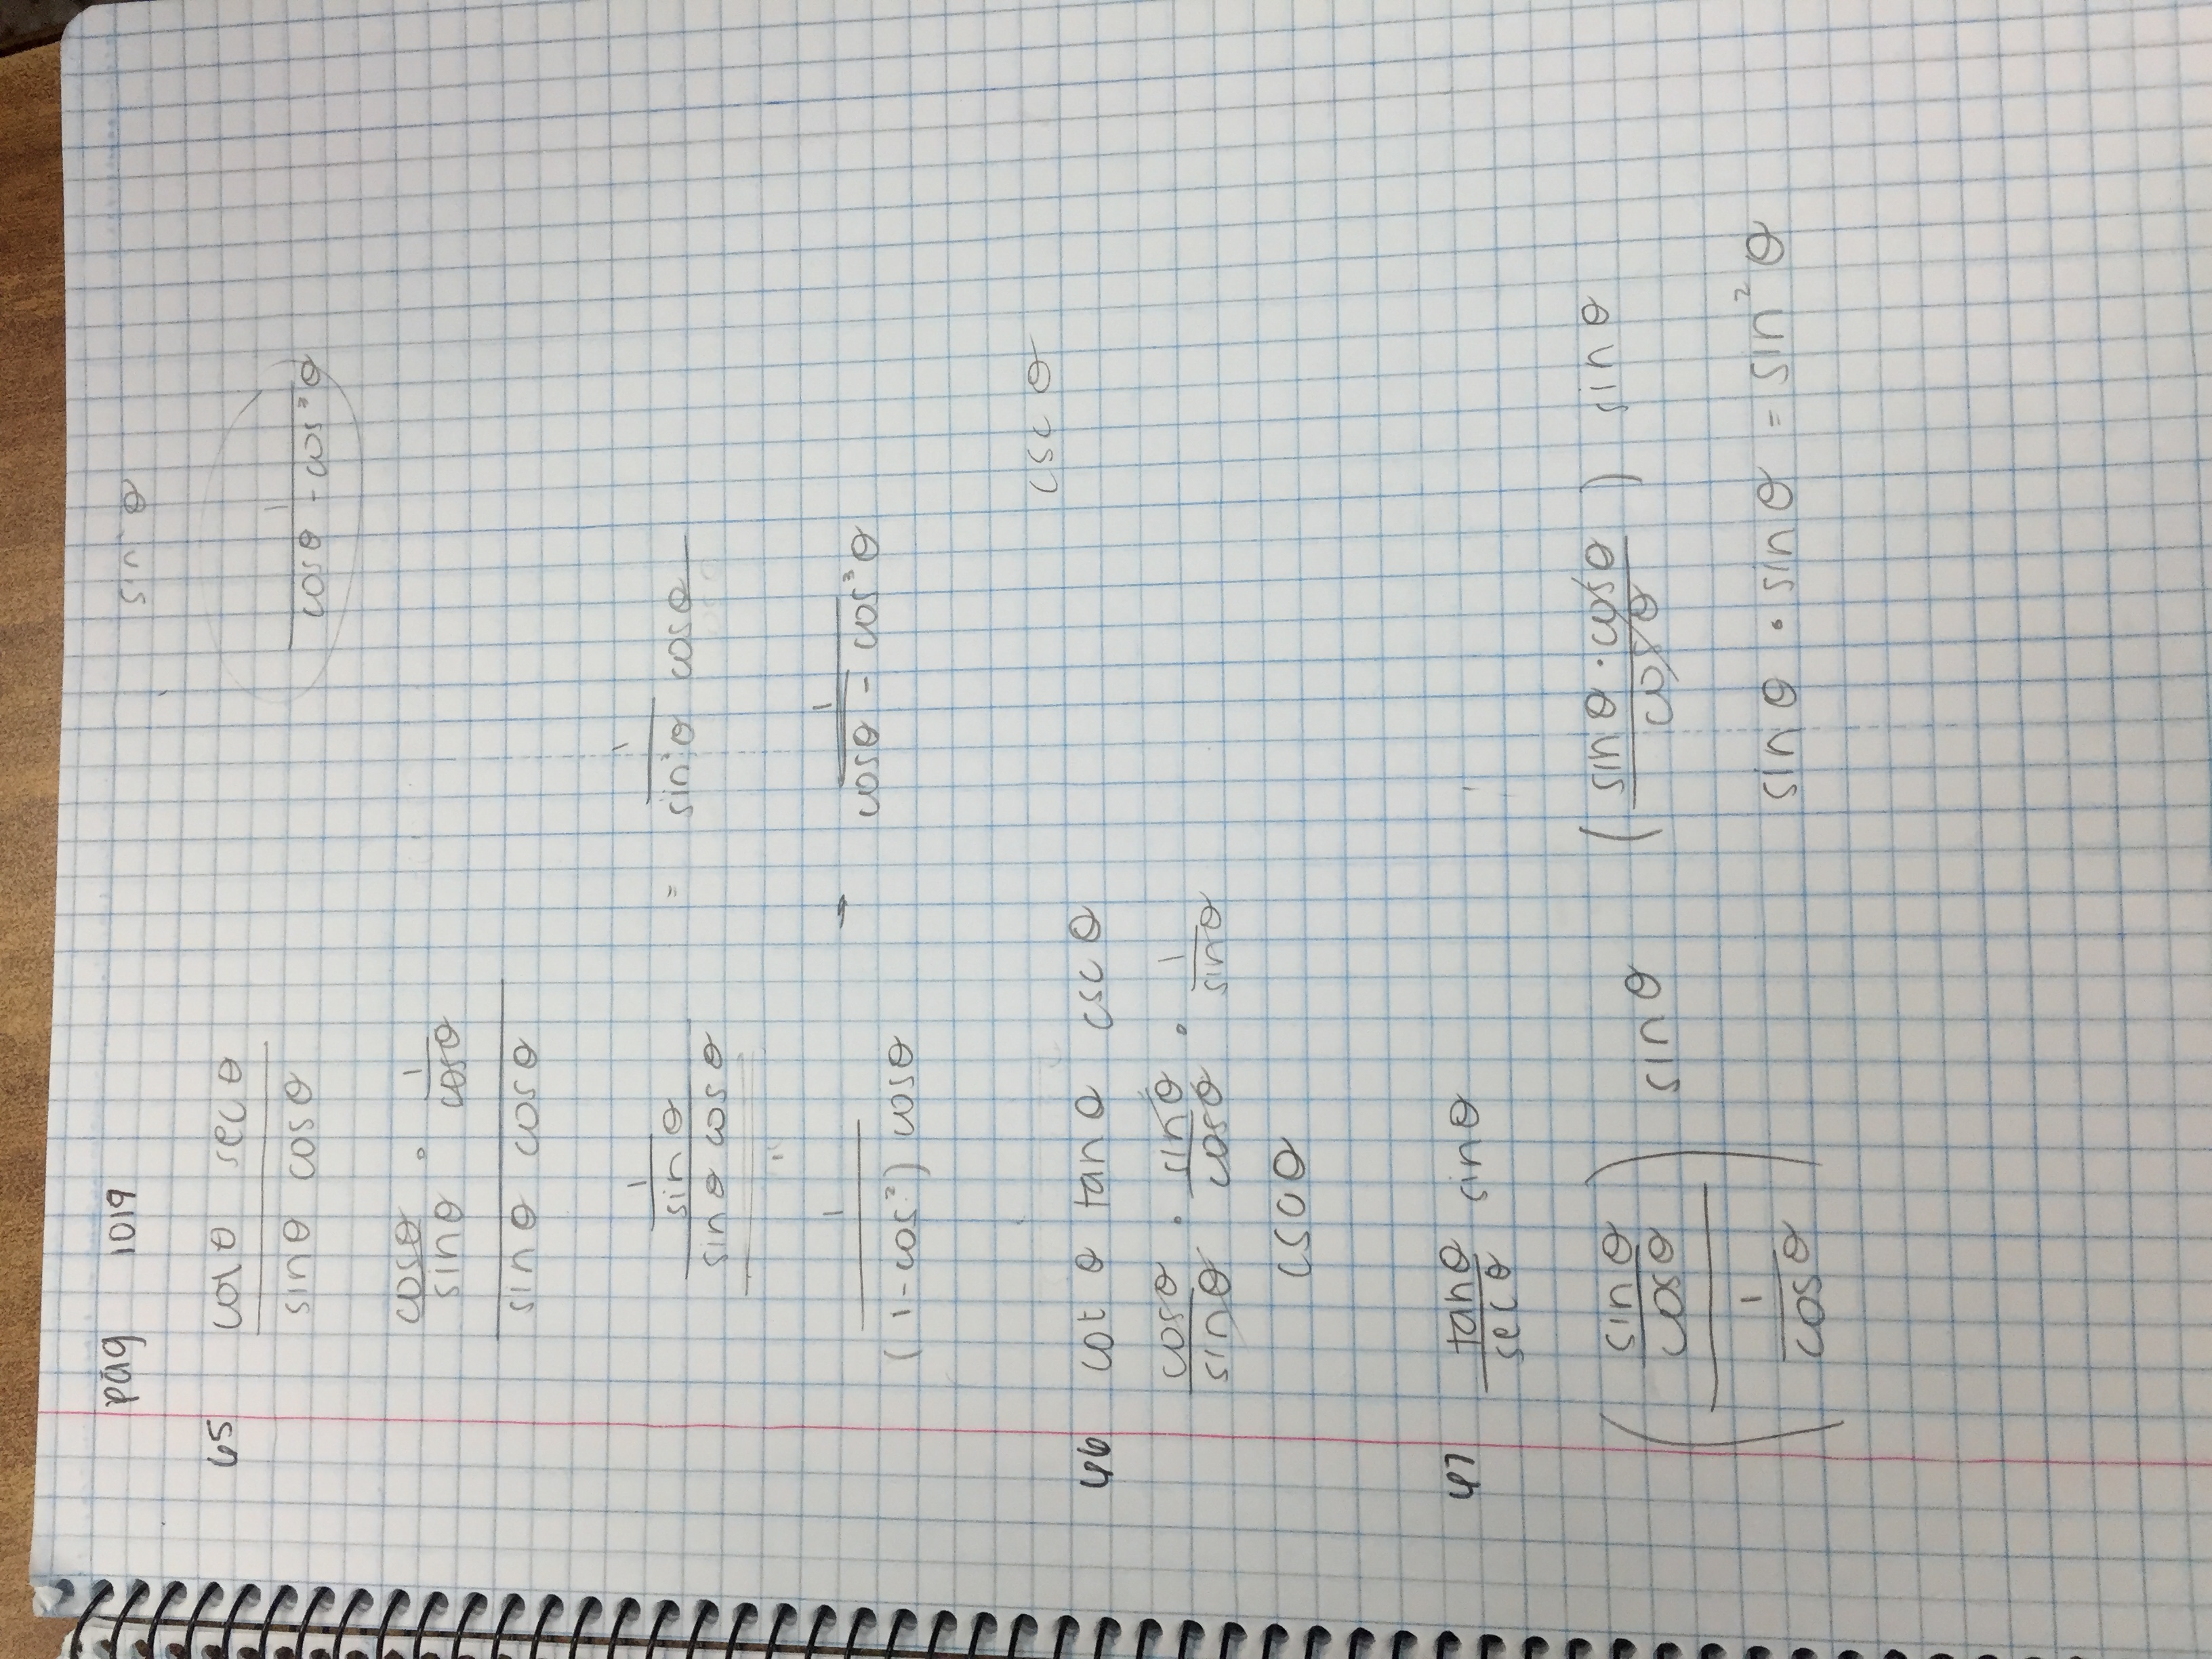 pag 1019
sin θ
45 cot θ sec θ
sin θ cos θ
1
cos θ - cos³ θ
cos θ / sin θ · 1 / cos θ
sin θ cos θ
1 / sin θ
sin θ cos θ
= 1 / sin² θ cos θ
1
(1 - cos²) cos θ
→ 1 / cos θ - cos³ θ
46 cot θ tan θ csc θ
csc θ
cos θ / sin θ · sin θ / cos θ · 1 / sin θ
csc θ
47 tan θ / sec θ sin θ
( sin θ / cos θ / 1 / cos θ ) sin θ
( sin θ · cos θ / cos θ ) sin θ
sin θ · sin θ = sin² θ